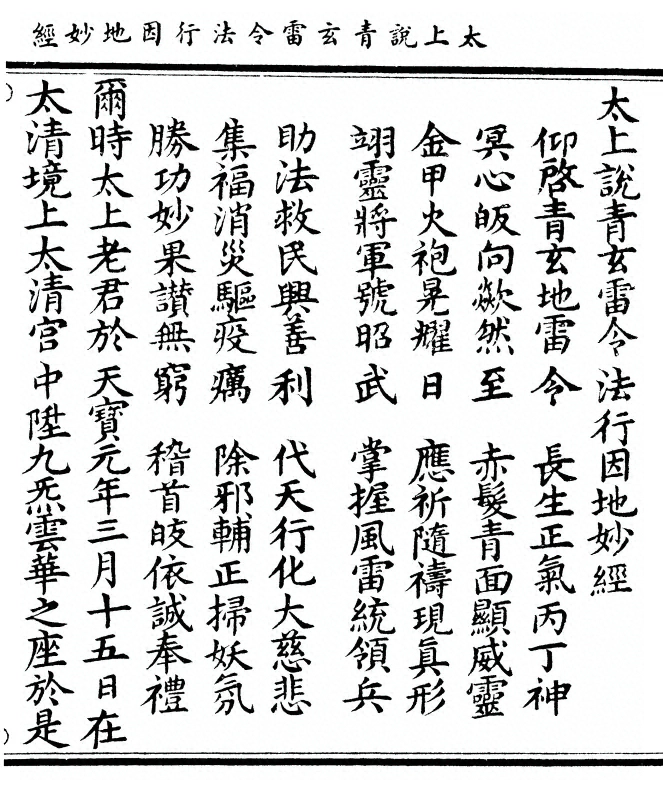 太上說青玄雷令法行因地妙經
太上說青玄雷令法行因地妙經
仰啓青玄地雷令 長生正氣丙丁神
冥心皈向歘然至 赤髮青面顯威靈
金甲火袍晃耀日 應祈隨禱現眞形
翊靈將軍號昭武 掌握風雷統領兵
助法救民興善利 代天行化大慈悲
集福消災驅疫癘 除邪輔正掃妖氛
勝功妙果讃無窮 稽首皈依誠奉禮
爾時太上老君於天寶元年三月十五日在
太清境上太清宮中陞九炁雲華之座於是